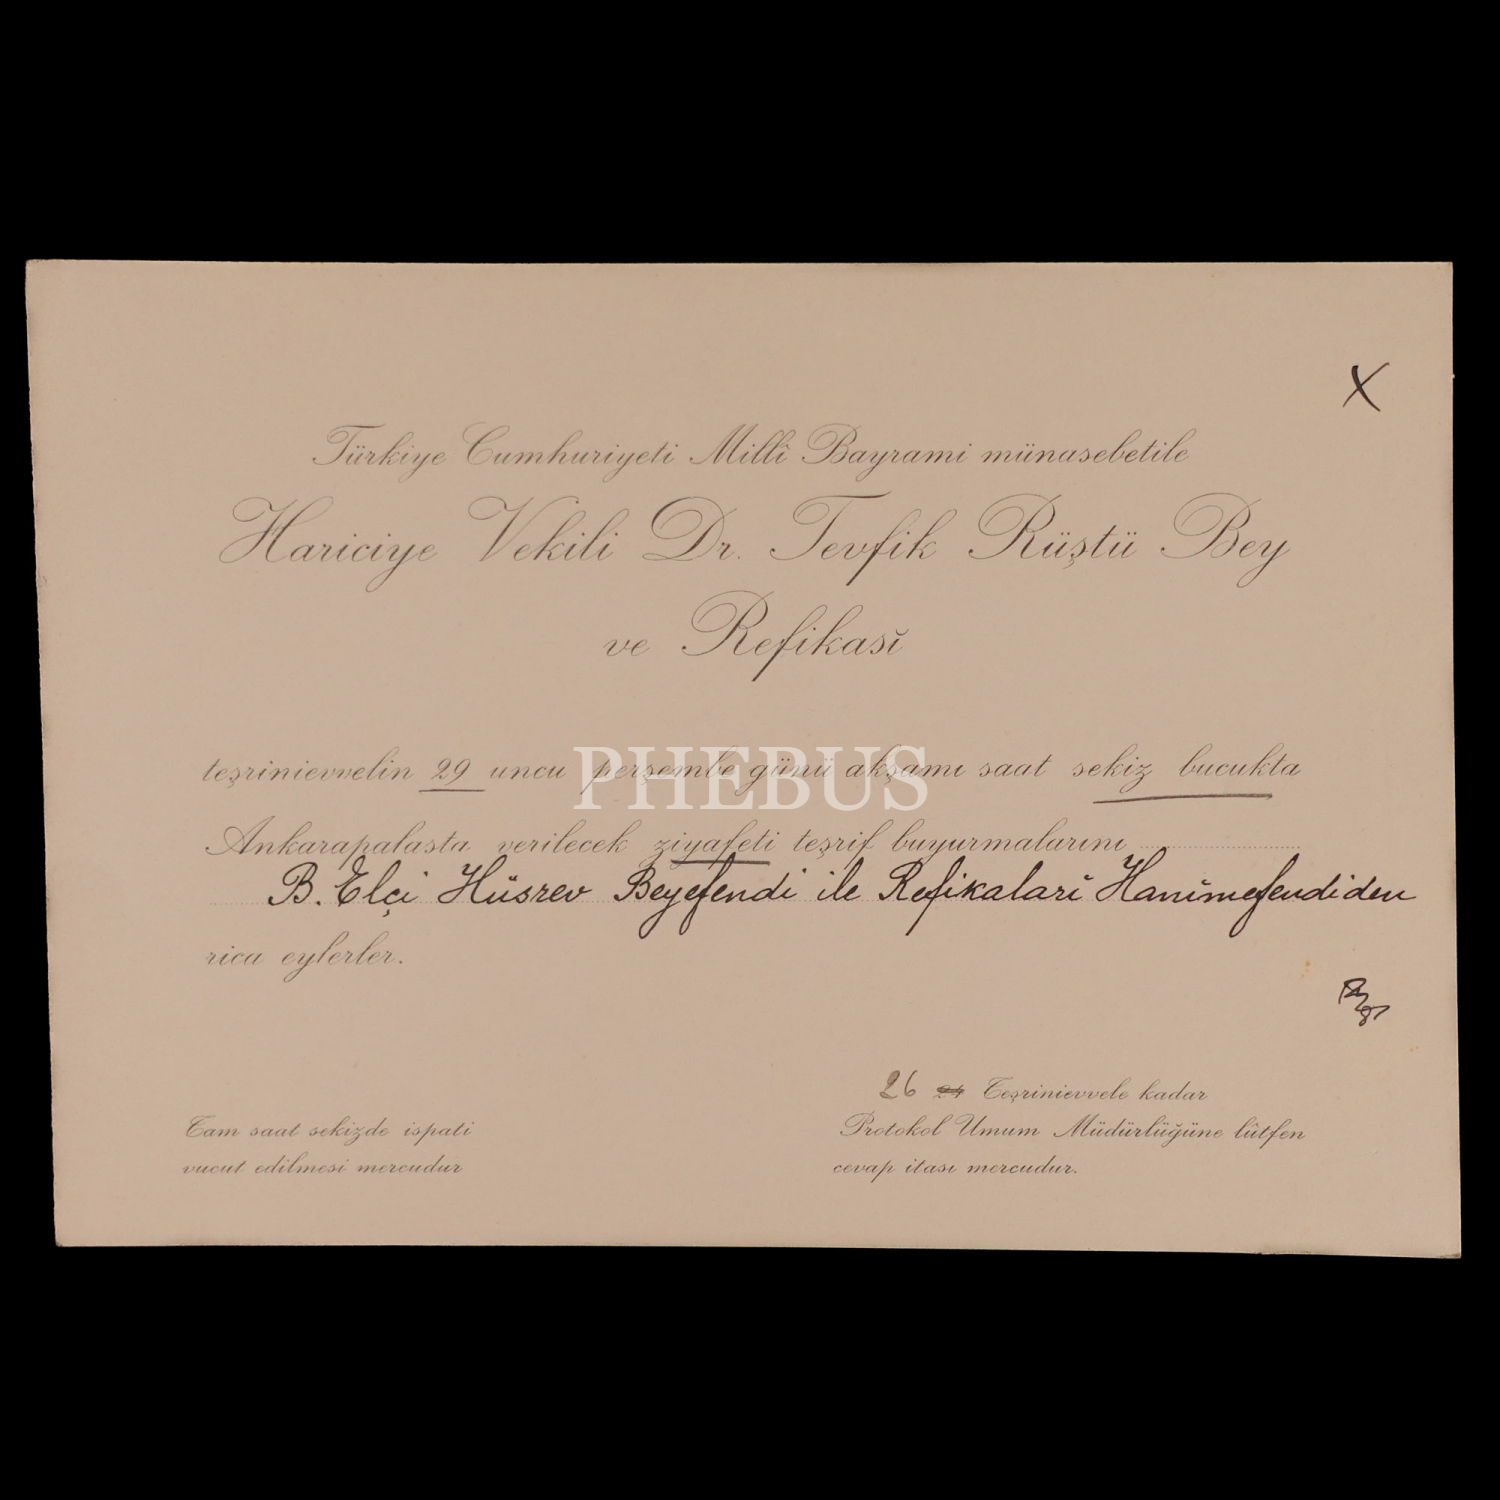 X
Türkiye Cumhuriyeti Millî Bayrami münasebetile
Hariciye Vekili Dr. Tevfik Rüştü Bey
ve Refikasĭ
teşrinievvelin 29 uncu perşembe günü akşamı saat sekiz bucukta
PHEBUS
Ankarapalasta verilecek ziyafeti teşrif buyurmalarını
B. Elçi Hüsrev Beyefendi ile Refikaları Hanımefendiden
rica eylerler.
26 24 Teşrinievvele kadar
Protokol Umum Müdürlüğüne lûtfen
cevap itası mercudur.
Tam saat sekizde ispati
vucut edilmesi mercudur